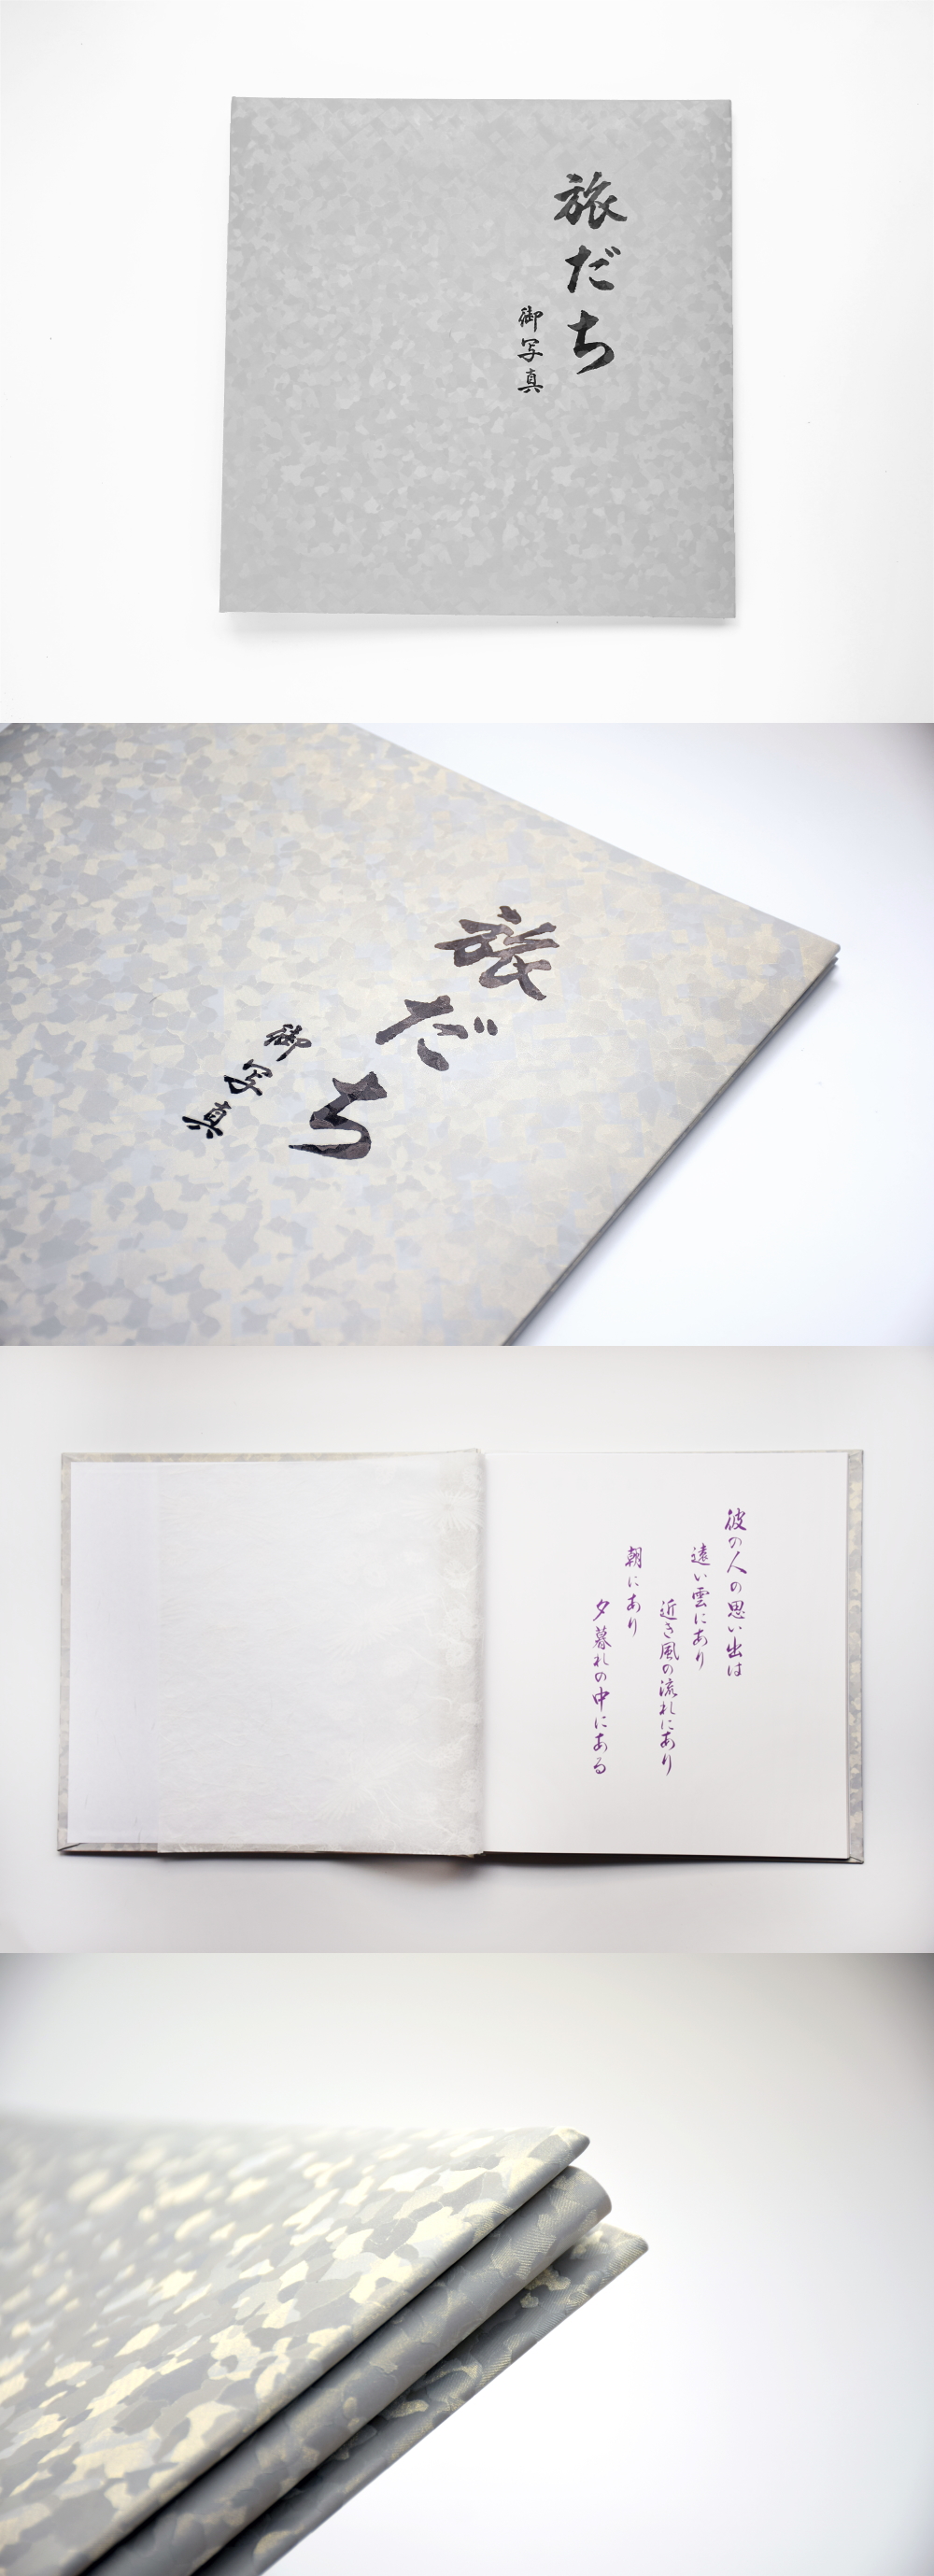 旅だち
御写真
旅だち
御写真
彼の人の思い出は
遠い雲にあり
近き風の流れにあり
朝にあり
夕暮れの中にある